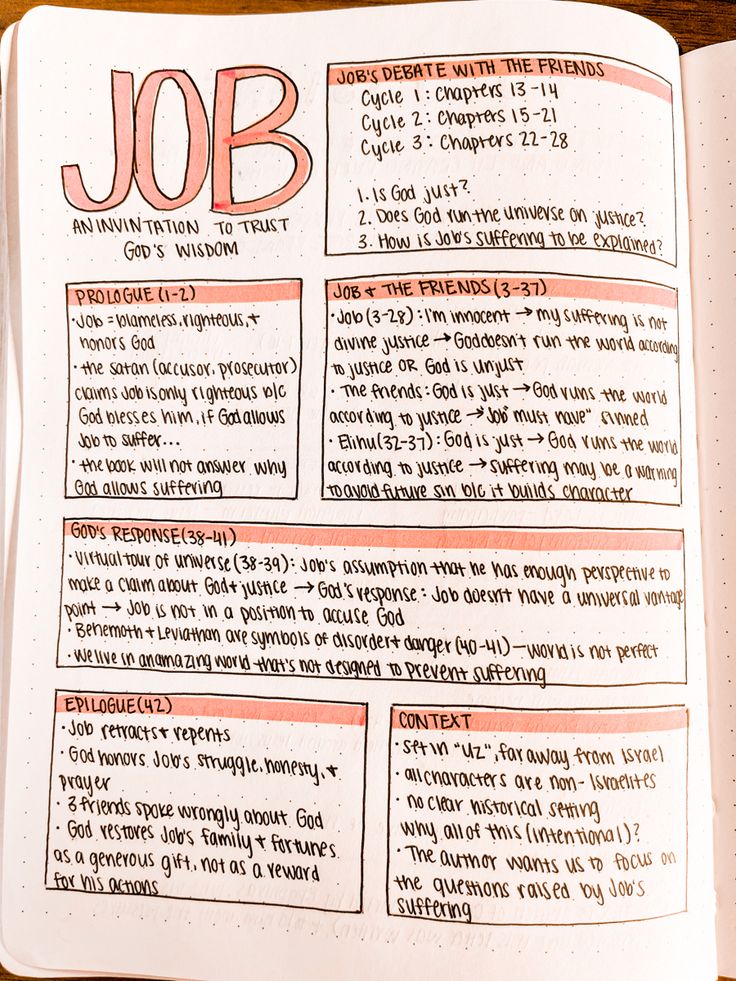 JOB
AN INVINTATION TO TRUST
GOD'S WISDOM
JOB'S DEBATE WITH THE FRIENDS
Cycle 1: Chapters 13-14
Cycle 2: Chapters 15-21
Cycle 3: Chapters 22-28
1. Is God just?
2. Does God run the universe on justice?
3. How is Job's suffering to be explained?
PROLOGUE (1-2)
• Job = blameless, righteous, +
honors God
• the satan (accusor, prosecutor)
claims Job is only righteous b/c
God blesses him, if God allows
Job to suffer...
• the book will not answer why
God allows suffering
JOB + THE FRIENDS (3-37)
• Job (3-28): I'm innocent → my suffering is not
divine justice → God doesn't run the world according
to justice OR God is unjust
• The friends: God is just → God runs the world
according to justice → "Job must have" sinned
• Elihu (32-37): God is just → God runs the world
according to justice → suffering may be a warning
to avoid future sin b/c it builds character
GOD'S RESPONSE (38-41)
• Virtual tour of universe (38-39): Job's assumption that he has enough perspective to
make a claim about God + justice → God's response: Job doesn't have a universal vantage
point → Job is not in a position to accuse God
• Behemoth + Leviathan are symbols of disorder + danger (40-41) — world is not perfect
• We live in an amazing world that's not designed to prevent suffering
EPILOGUE (42)
• Job retracts + repents
• God honors Job's struggle, honesty, +
prayer
• 3 friends spoke wrongly about God
• God restores Job's family + fortunes
as a generous gift, not as a reward
for his actions
CONTEXT
• set in "UZ", far away from Israel
• all characters are non-Israelites
• no clear historical setting
why all of this (intentional)?
• The author wants us to focus on
the questions raised by Job's
suffering